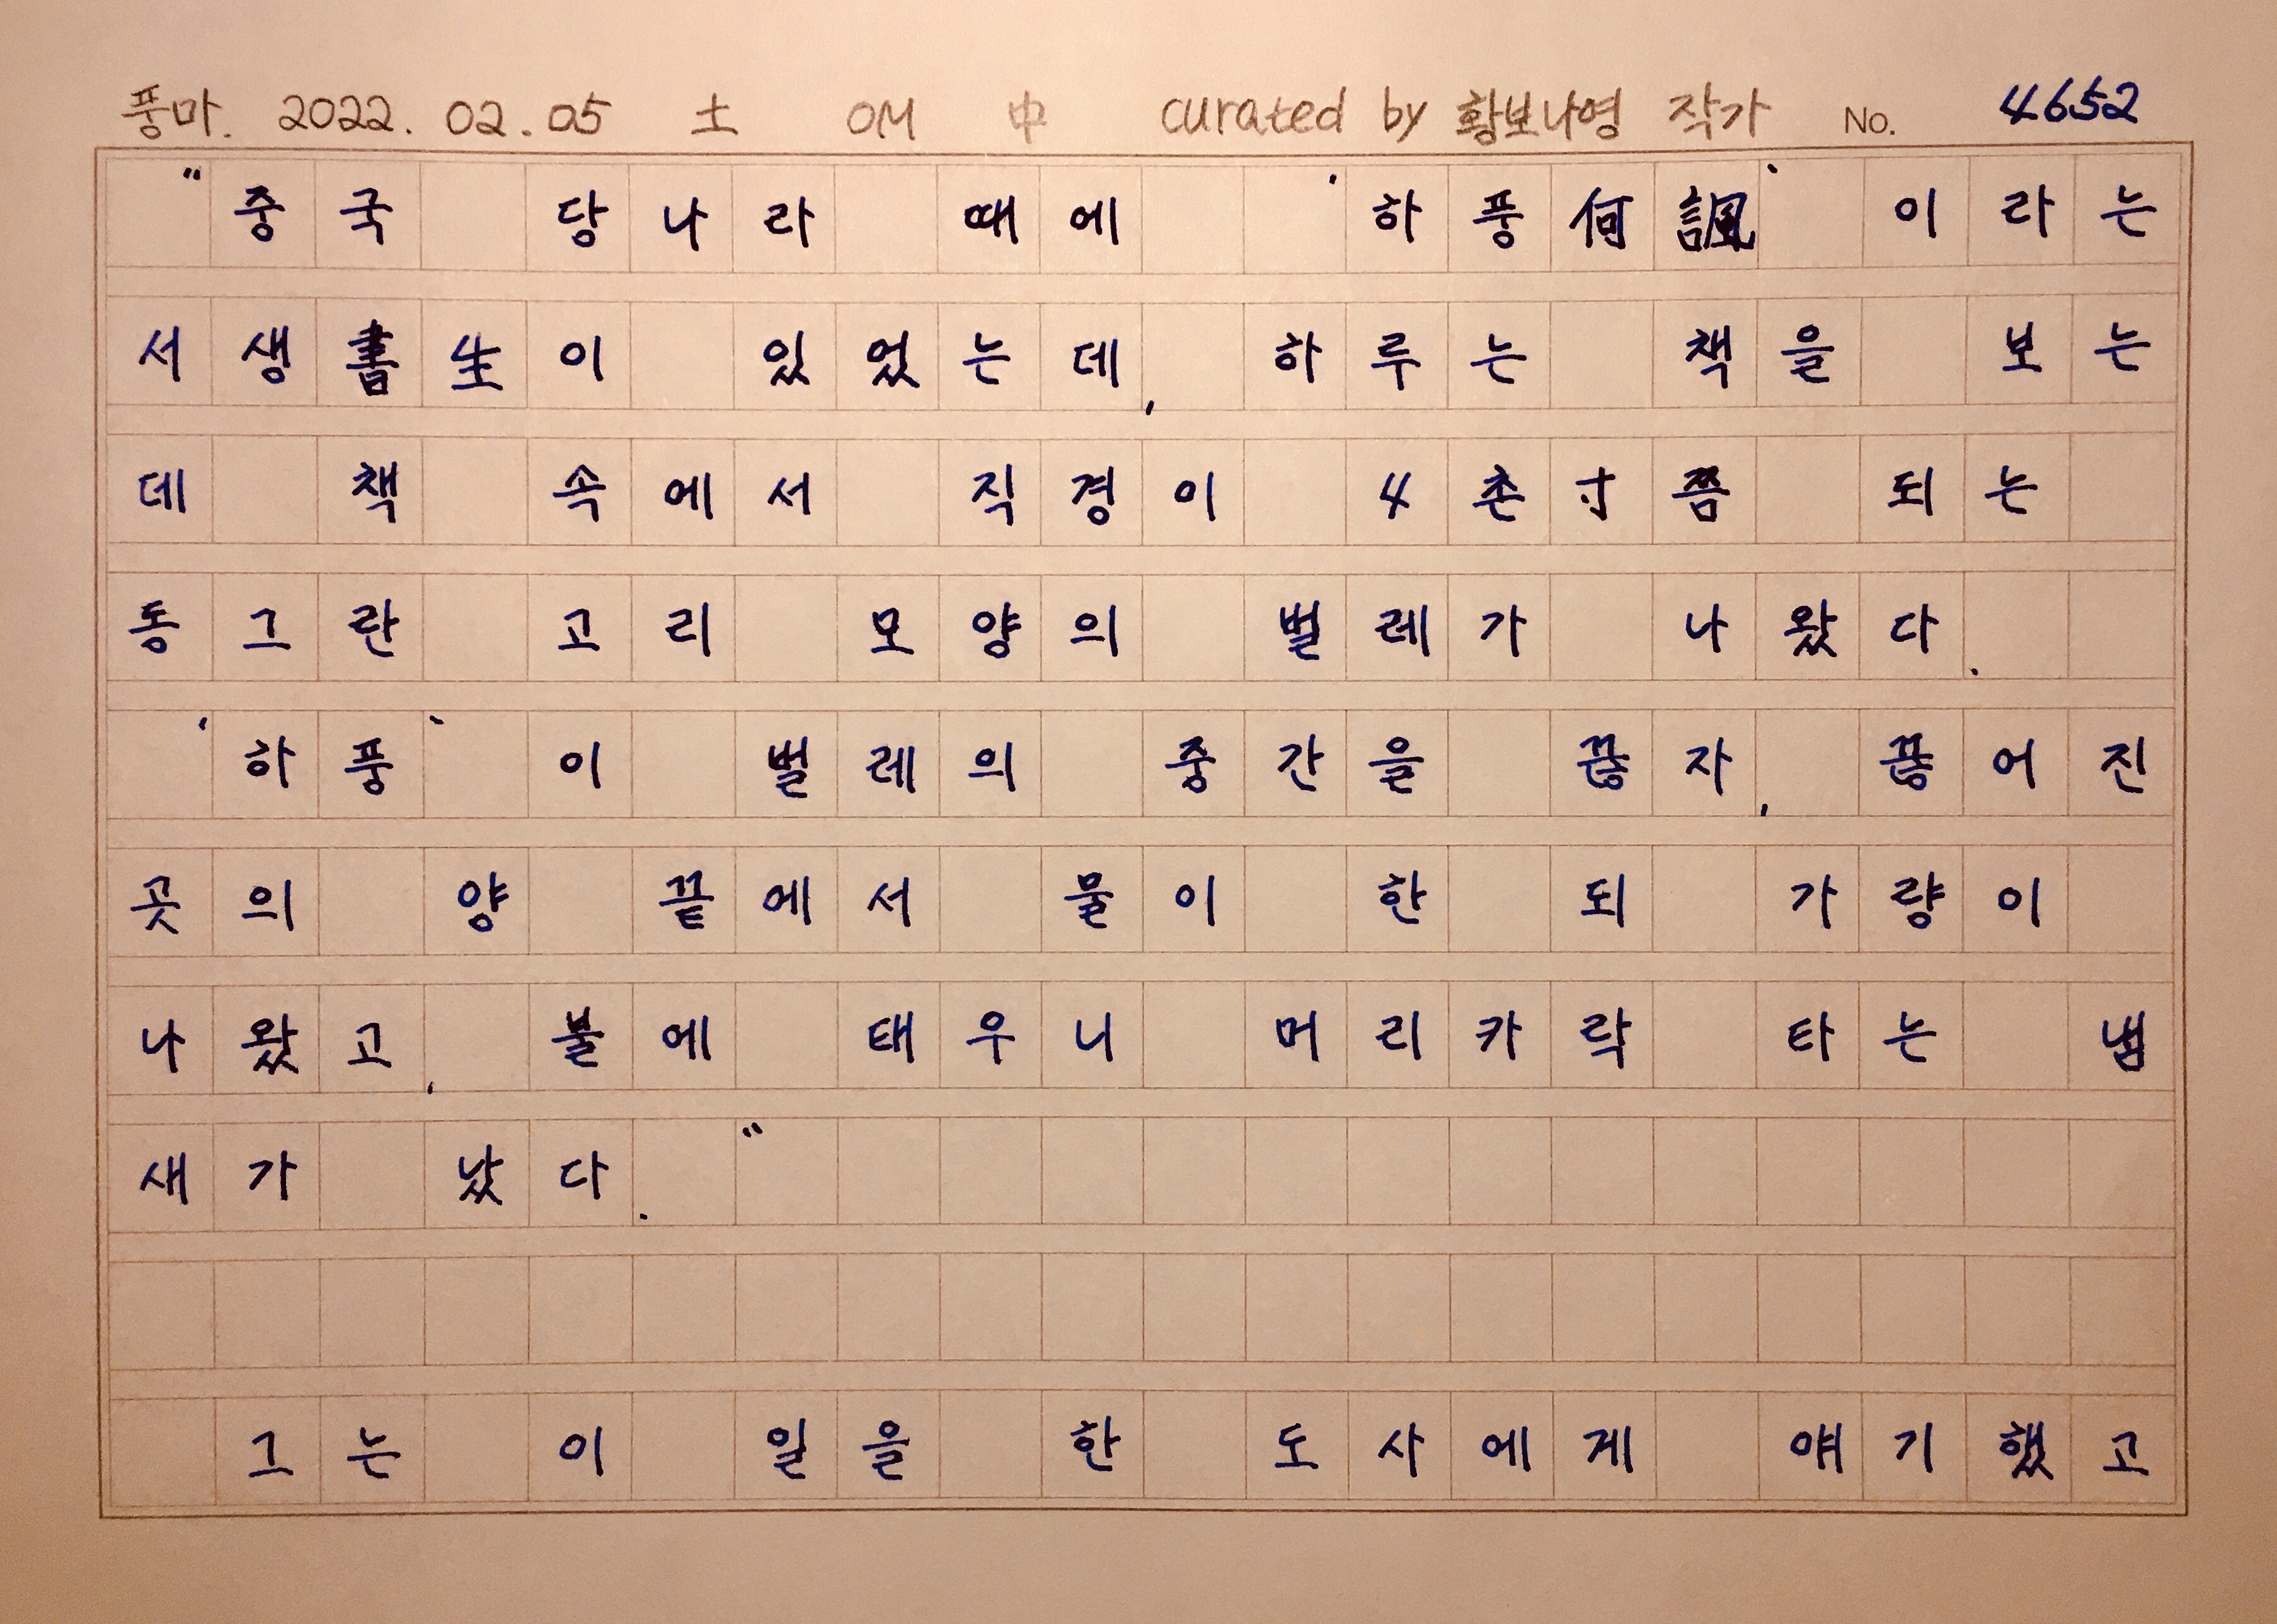 풍마. 2022. 02. 05 土 OM 中 curated by 황보나영 작가 No. 4652
"중국 당나라 때에 '하풍何諷' 이라는
서생書生이 있었는데, 하루는 책을 보는
데 책 속에서 직경이 4촌寸쯤 되는
동그란 고리 모양의 벌레가 나왔다.
'하풍' 이 벌레의 중간을 끊자, 끊어진
곳의 양 끝에서 물이 한 되 가량이
나왔고, 불에 태우니 머리카락 타는 냄
새가 났다. "
그는 이 일을 한 도사에게 얘기했고